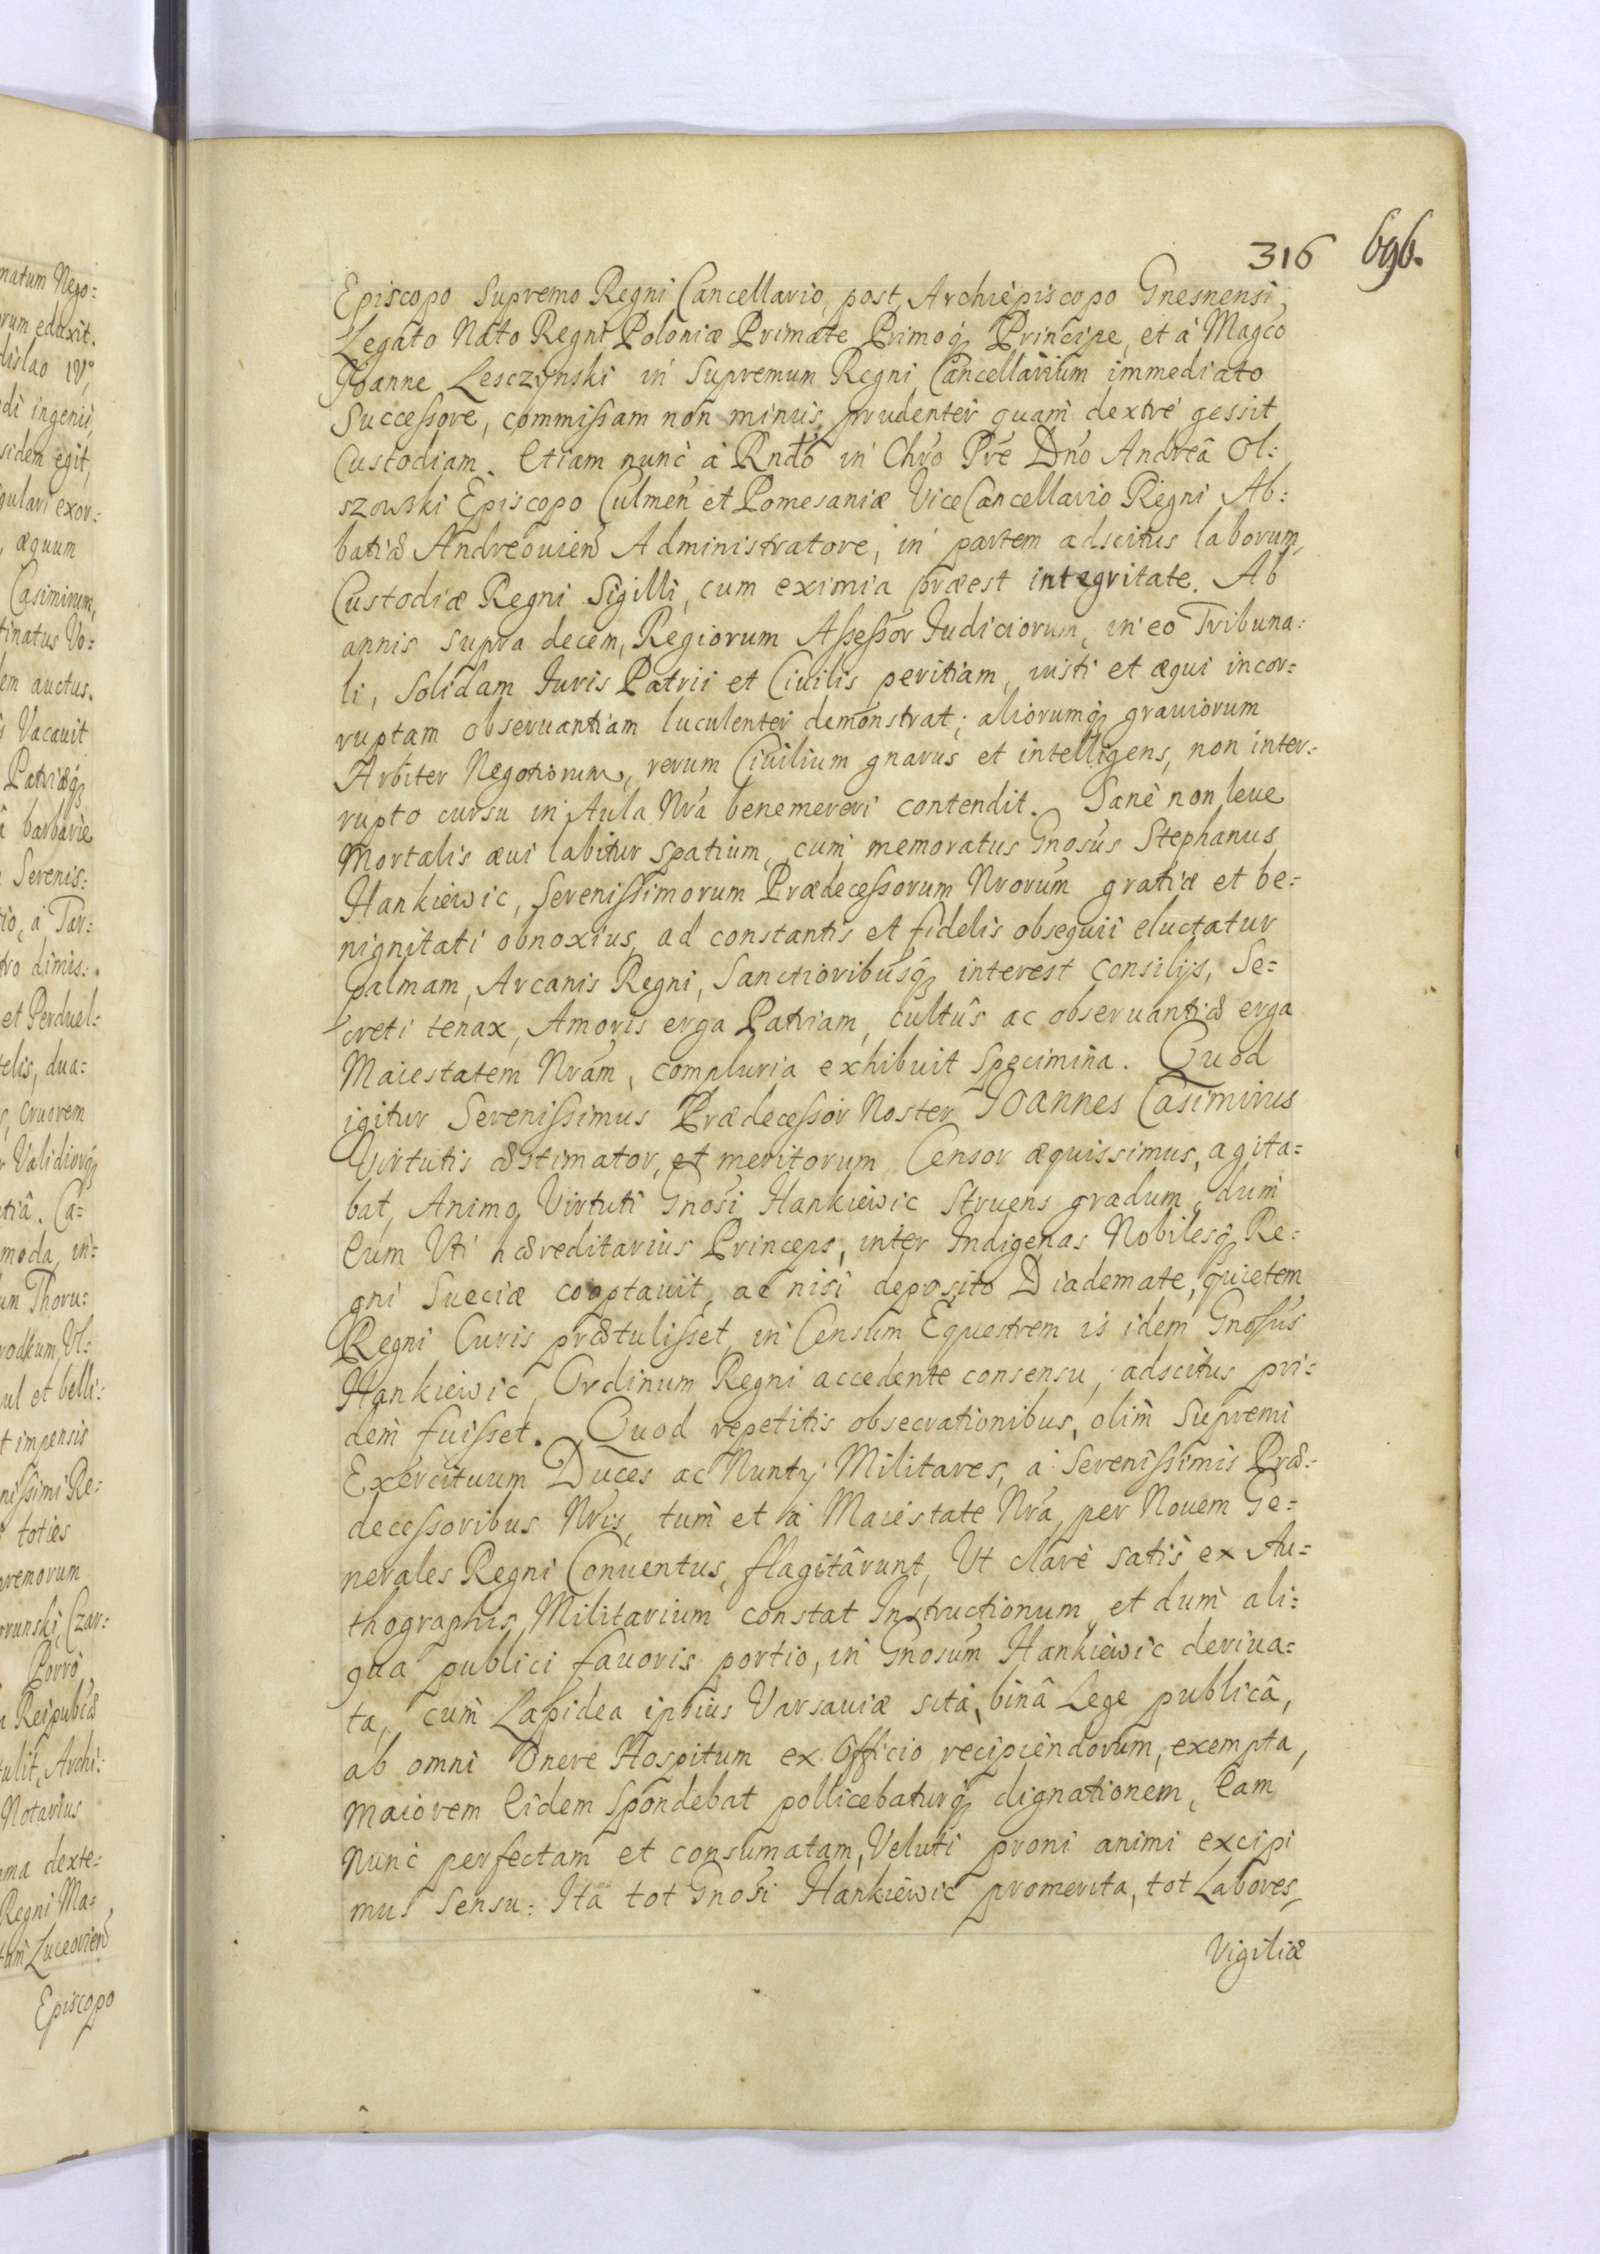 316 696.
Episcopo Supremo Regni Cancellario, post Archiepiscopo Gnesnensi,
Legato Nato Regni Poloniæ Primate Primoq; Principe, et à Magco
Joanne Lesczynski in Supremum Regni Cancellarium immediato
Successore, commissam non minus prudenter quam dextre gessit
Custodiam. Etiam nunc à Rndo in Chro Pre Dno Andreâ Ol:
szowski Episcopo Culmen et Pomesaniæ ViceCancellario Regni Ab:
batiæ Andreouien Administratore, in partem adscitus laborum,
Custodiæ Regni Sigilli, cum eximia præest integritate. Ab
annis supra decem, Regiorum Assessor Iudiciorum, in eo Tribuna:
li, Solidam Iuris Patrii et Ciuilis peritiam, iusti et æqui incor:
ruptam obseruantiam luculenter demonstrat; aliorumq; grauiorum
Arbiter Negotiorum, rerum Ciuilium gnarus et intelligens, non inter:
rupto cursu in Aula Nra benemereri contendit. Sanè non leue
Mortalis æui labitur spatium, cum memoratus Gnosus Stephanus
Hankiewic, Serenissimorum Prædecessorum Nrorum gratiæ et be:
nignitati obnoxius, ad constantis et fidelis obsequii eluctatur
palmam, Arcanis Regni, Sanctioribusq; interest Consilijs, Se:
creti tenax, Amoris erga Patriam, cultûs ac obseruantiæ erga
Maiestatem Nram, compluria exhibuit Specimina. Quod
igitur Serenissimus Prædecessor Noster IOANNES Casimirus
Virtutis æstimator, et meritorum Censor æquissimus, agita:
bat, Animo Virtuti Gnosi Hankiewic Struens gradum, dum
Eum Uti hæreditarius Princeps, inter Indigenas Nobilesq; Re:
gni Sueciæ cooptauit, ac nisi deposito Diademate, quietem
Regni Curis prætulisset, in Censum Equestrem is idem Gnosus
Hankiewic, Ordinum Regni accedente consensu, adscitus pri:
dem fuisset. Quod repetitis obsecrationibus, olim Supremi
Exercituum Duces ac Nuntij Militares, à Serenissimis Præ:
decessoribus Nris, tum et à Maiestate Nra, per Nouem Ge:
nerales Regni Conuentus, flagitârunt, Ut clarè satis ex Au:
thographis Militarium constat Instructionum, et dum ali:
qua publici fauoris portio, in Gnosum Hankiewic deriua:
ta, cum Lapidea ipsius Varsauiæ sita, binâ Lege publicâ,
ab omni Onere Hospitum ex Officio recipiendorum, exempta,
maiorem Eidem Spondebat pollicebaturq; dignationem, Eam
Nunc perfectam et consumatam, Veluti proni animi excipi
mus Sensu: Ita tot Gnosi Hankiewic promerita, tot Labores,
Vigiliæ